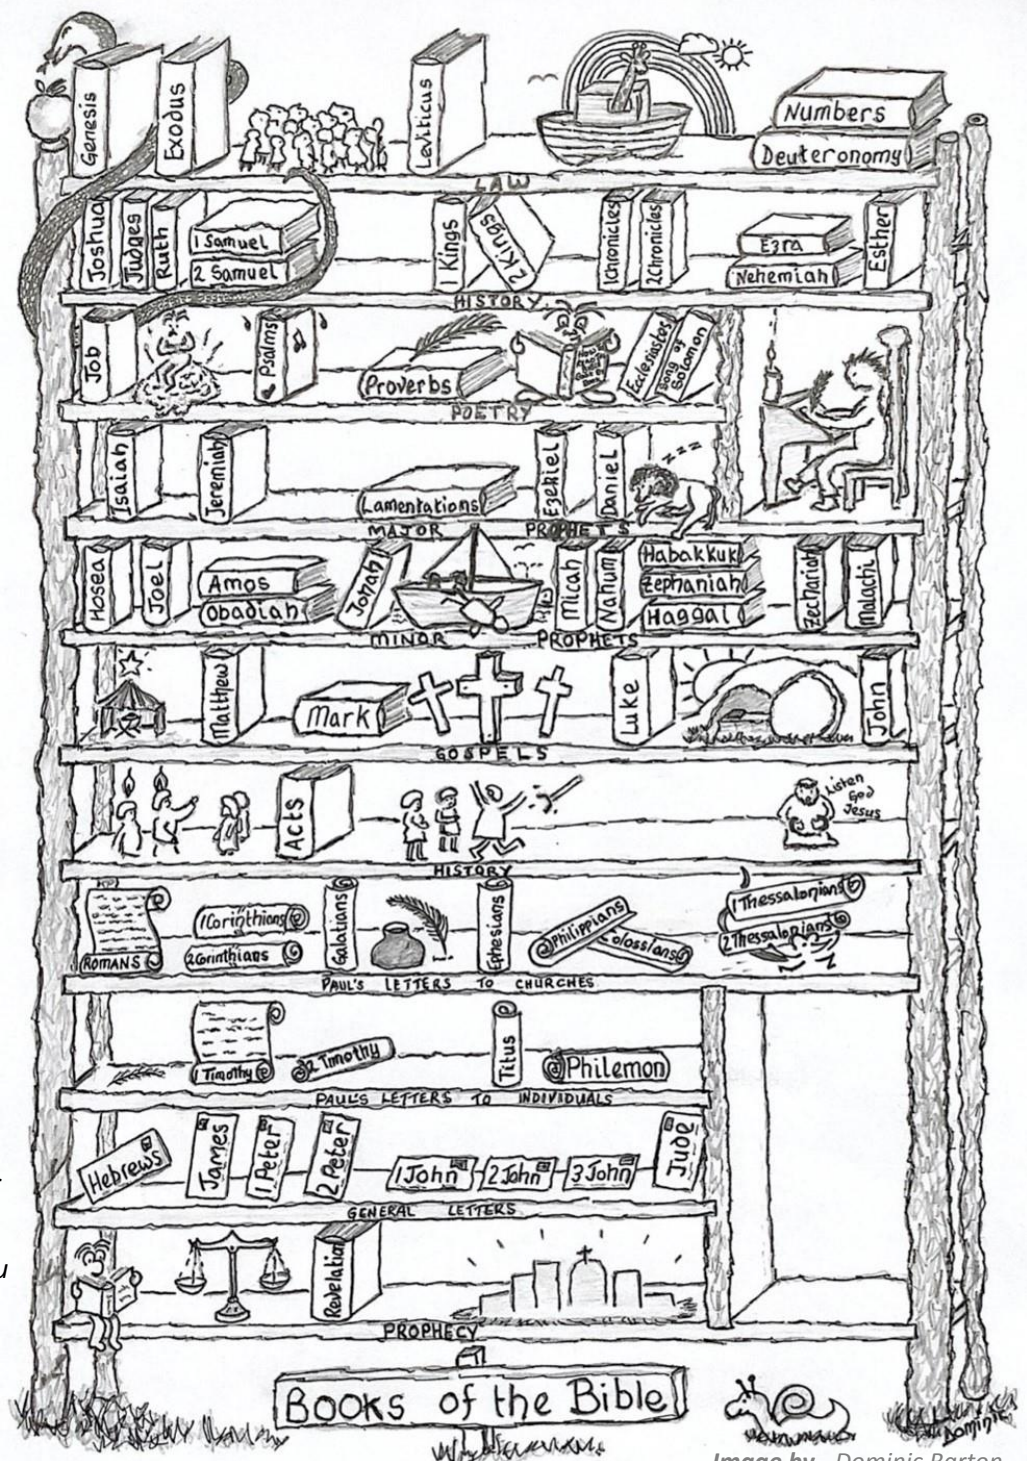 Genesis
Exodus
Leviticus
Numbers
Deuteronomy
LAW
Joshua
Judges
Ruth
1 Samuel
2 Samuel
1 Kings
2 Kings
1 Chronicles
2 Chronicles
Ezra
Nehemiah
Esther
HISTORY
Job
Psalms
Proverbs
Ecclesiastes
Song of
Solomon
POETRY
Isaiah
Jeremiah
Lamentations
Ezekiel
Daniel
z z z
MAJOR PROPHETS
Hosea
Joel
Amos
Obadiah
Jonah
Micah
Nahum
Habakkuk
Zephaniah
Haggai
Zechariah
Malachi
MINOR PROPHETS
Matthew
Mark
Luke
John
GOSPELS
Acts
Listen
God
Jesus
HISTORY
ROMANS
1 Corinthians
2 Corinthians
Galatians
Ephesians
Philippians
Colossians
1 Thessalonians
2 Thessalonians
PAUL'S LETTERS TO CHURCHES
1 Timothy
2 Timothy
Titus
Philemon
PAUL'S LETTERS TO INDIVIDUALS
Hebrews
James
1 Peter
2 Peter
1 John
2 John
3 John
Jude
GENERAL LETTERS
Revelation
PROPHECY
Books of the Bible
Dominic
Image by - Dominic Barton